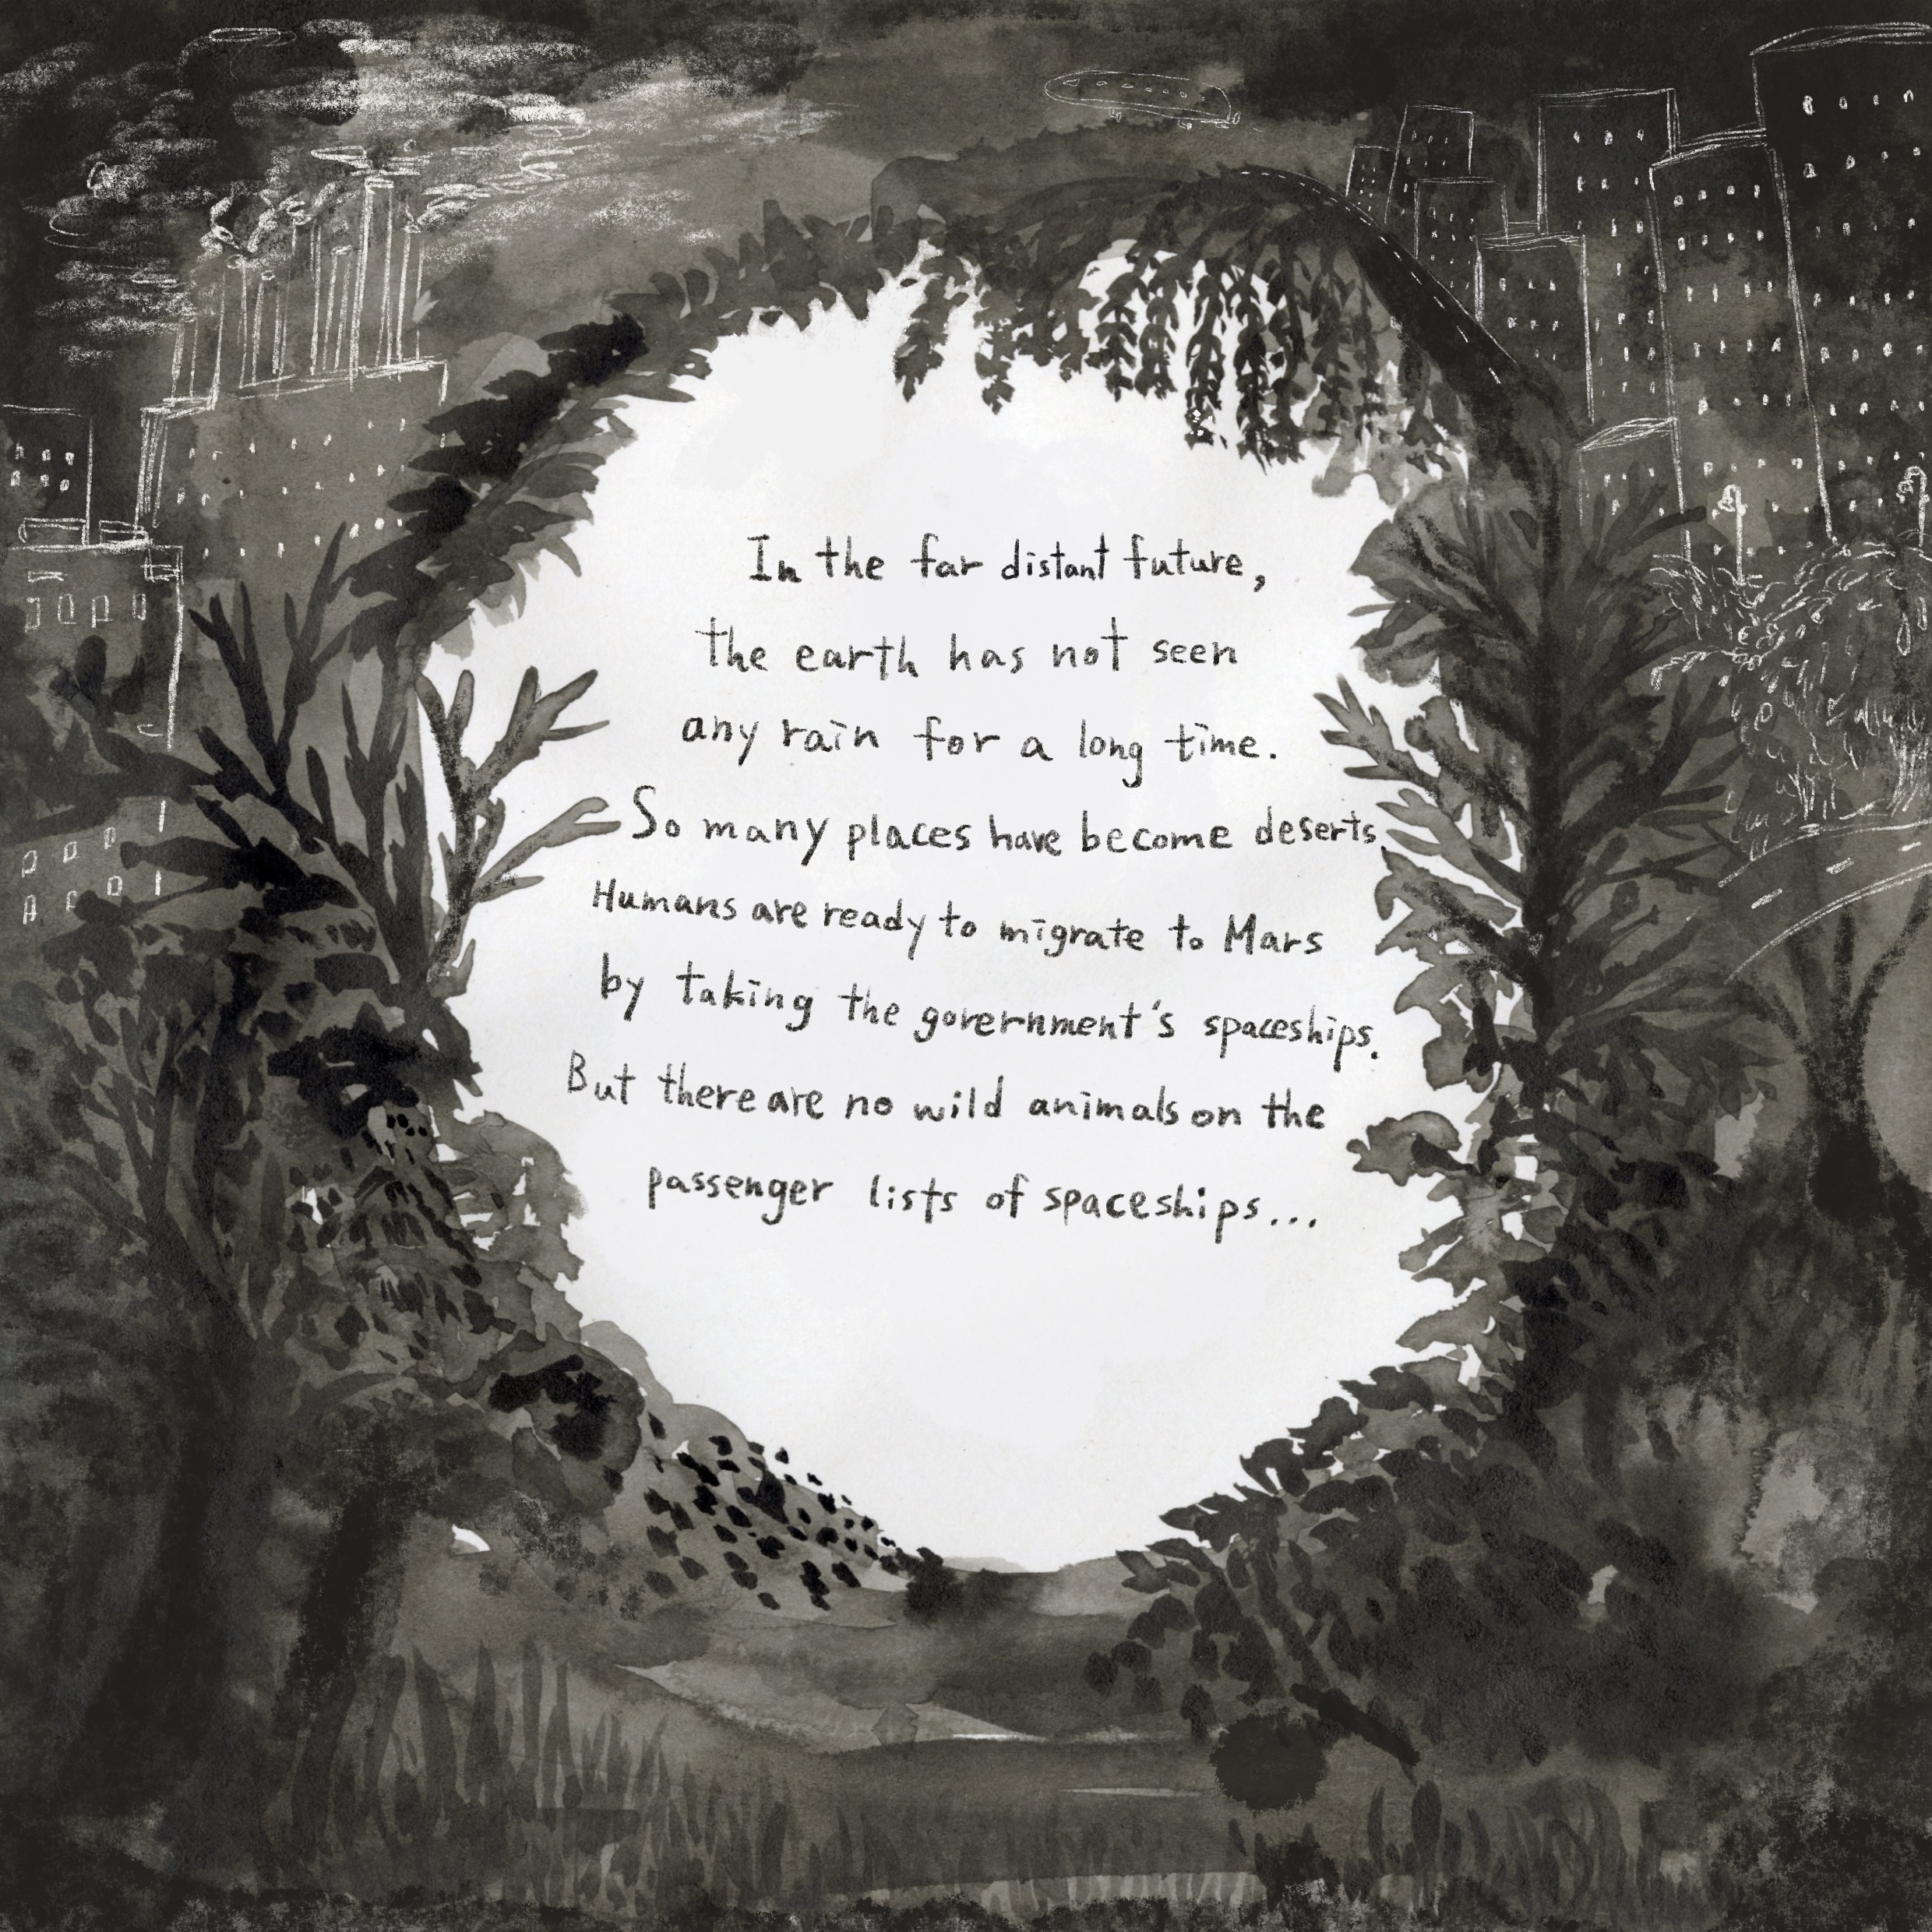 In the far distant future,
the earth has not seen
any rain for a long time.
So many places have become deserts.
Humans are ready to migrate to Mars
by taking the government's spaceships.
But there are no wild animals on the
passenger lists of spaceships...